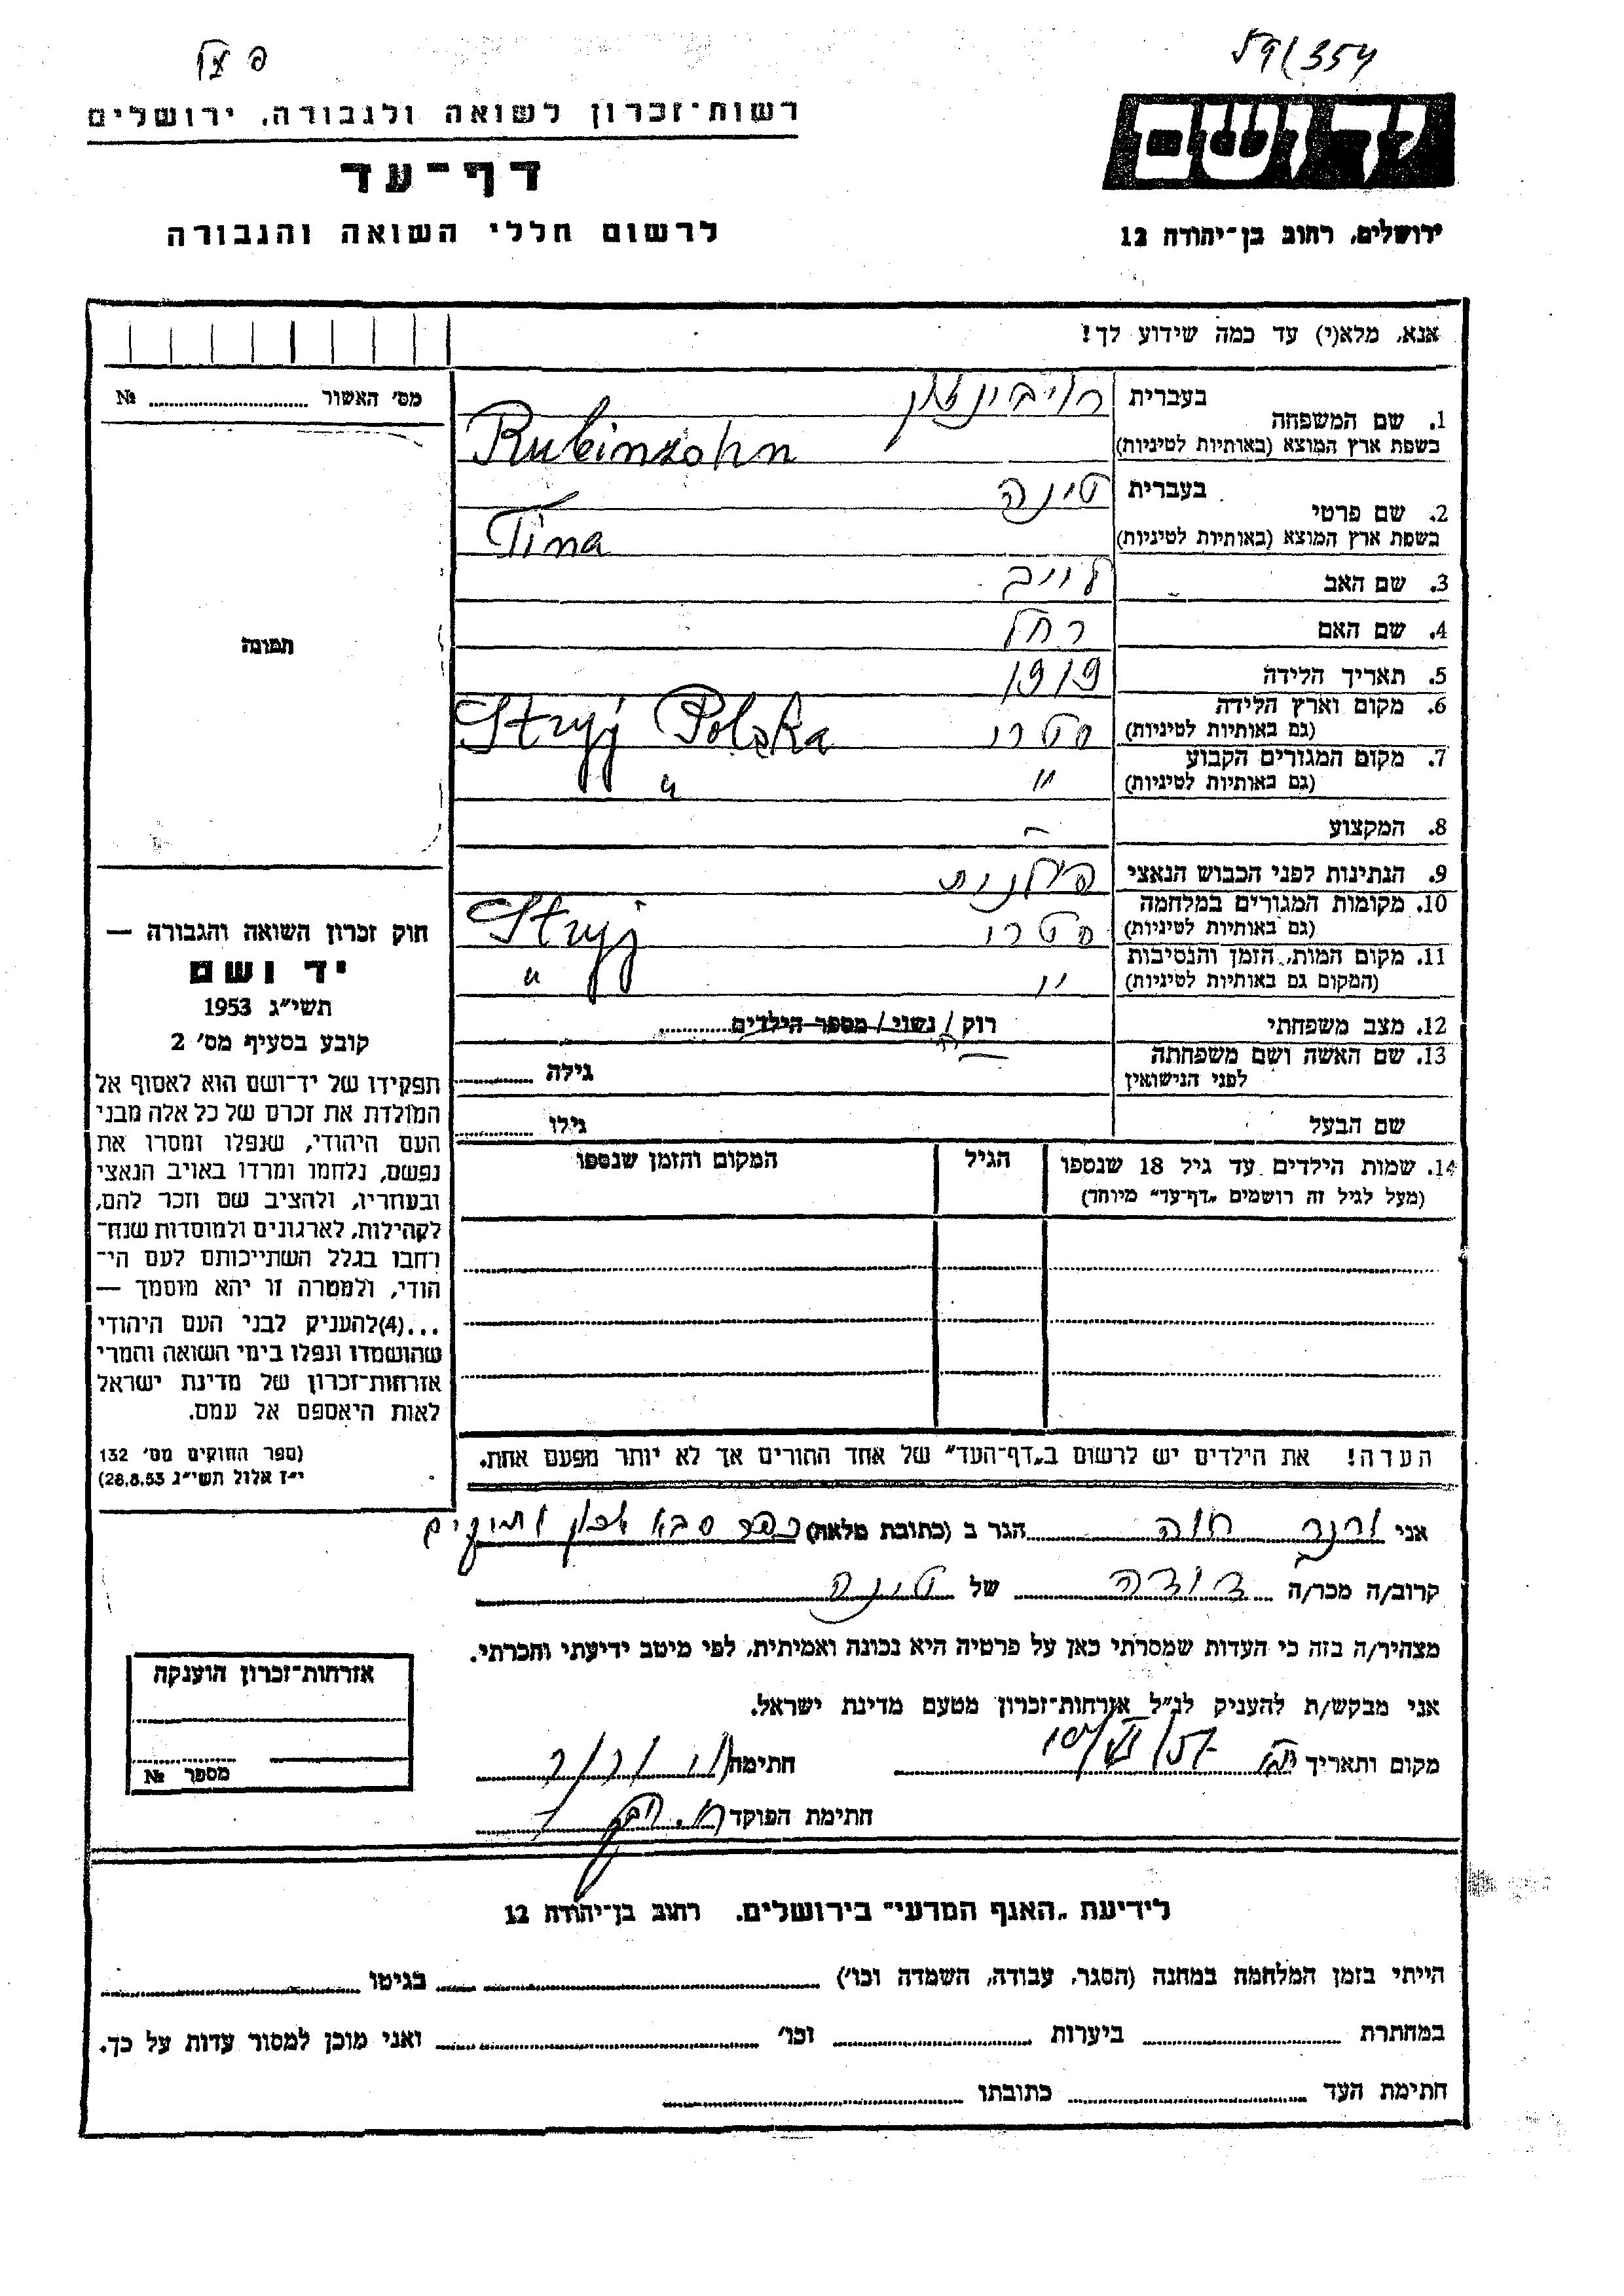 59/354
רשות־זכרון לשואה ולגבורה, ירושלים
דף־עד
לרשום חללי השואה והגבורה
ידושם
ירושלים, רחוב בן־יהודה 12
אנא, מלא(י) עד כמה שידוע לך!
מס׳ האשור № 
1. שם המשפחה בעברית
בשפת ארץ המוצא (באותיות לטיניות) Rubinsohn
2. שם פרטי בעברית טינה
בשפת ארץ המוצא (באותיות לטיניות) Tina
3. שם האב לייב
4. שם האם רחל
5. תאריך הלידה 1919
6. מקום וארץ הלידה (גם באותיות לטיניות) סטרי Stryj Polska
7. מקום המגורים הקבוע (גם באותיות לטיניות) " "
8. המקצוע –
9. הנתינות לפני הכבוש הנאצי פולנית
10. מקומות המגורים במלחמה (גם באותיות לטיניות) סטרי Stryj
11. מקום המות, הזמן והנסיבות (המקום גם באותיות לטיניות) " "
12. מצב משפחתי רוק / נשוי / מספר הילדים
13. שם האשה ושם משפחתה לפני הנישואין גילה
שם הבעל גילו
14. שמות הילדים עד גיל 18 שנספו הגיל המקום והזמן שנספו
(מעל לגיל זה רושמים „דף־עד״ מיוחד)
תמונה
חוק זכרון השואה והגבורה —
יד ושם
תשי״ג 1953
קובע בסעיף מס׳ 2
תפקידו של יד־ושם הוא לאסוף אל
המולדת את זכרם של כל אלה מבני
העם היהודי, שנפלו ומסרו את
נפשם, נלחמו ומרדו באויב הנאצי
ובעוזריו, ולהציב שם וזכר להם,
לקהילות, לארגונים ולמוסדות שנח־
רחבו בגלל השתייכותם לעם הי־
הודי, ולמטרה זו יהא מוסמך —
...(4)להעניק לבני העם היהודי
שהושמדו ונפלו בימי השואה והמרי
אזרחות־זכרון של מדינת ישראל
לאות היאספם אל עמם.
(ספר החוקים מס׳ 132
י״ז אלול תשי״ג 28.8.53)
הערה! את הילדים יש לרשום ב„דף־העד״ של אחד ההורים אך לא יותר מפעם אחת.
אני ורנר חוה הגר ב (כתובת מלאה) כפר סבא שכון ותיקים
קרוב/ה מכר/ה דודה של טינה
מצהיר/ה בזה כי העדות שמסרתי כאן על פרטיה היא נכונה ואמיתית, לפי מיטב ידיעתי והכרתי.
אני מבקש/ת להעניק לנ״ל אזרחות־זכרון מטעם מדינת ישראל.
מקום ותאריך חתימה
חתימת הפוקד
אזרחות־זכרון הוענקה
מספר №
לידיעת „האגף המדעי״ בירושלים, רחוב בן־יהודה 12
הייתי בזמן המלחמה במחנה (הסגר, עבודה, השמדה וכו׳) בגיטו
במחתרת ביערות וכו׳ ואני מוכן למסור עדות על כך.
חתימת העד כתובתו